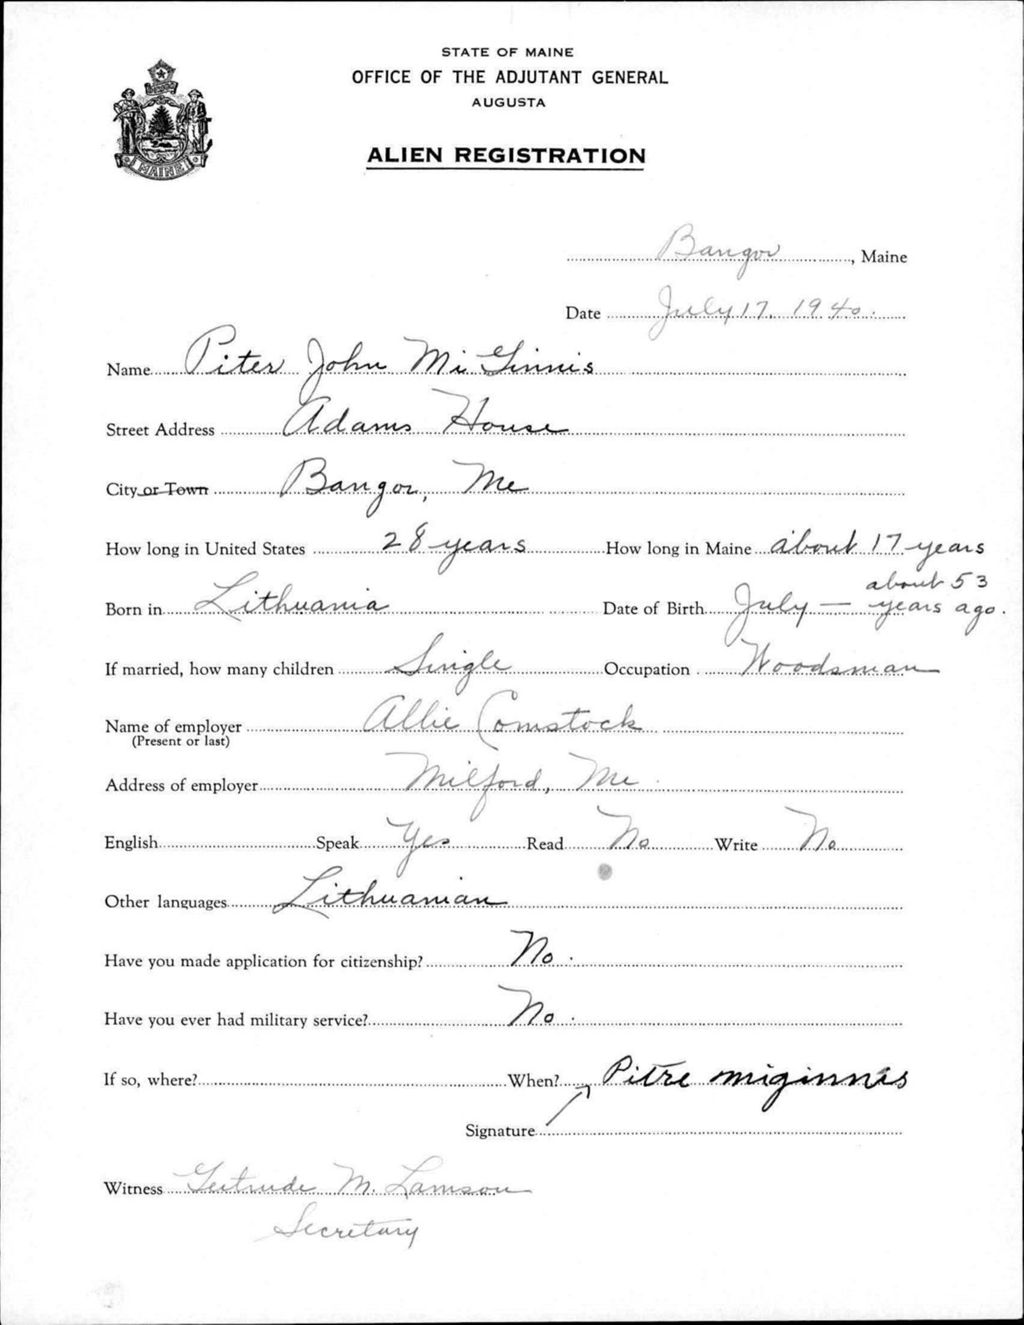 STATE OF MAINE
OFFICE OF THE ADJUTANT GENERAL
AUGUSTA
ALIEN REGISTRATION
MAINE
Bangor, Maine
Date July 17, 1940.
Name Piter John Mi Ginnis
Street Address Adams House
City or Town Bangor, Me
How long in United States 28 years How long in Maine about 17 years
Born in Lithuania Date of Birth July — about 53 years ago.
If married, how many children Single Occupation Woodsman
Name of employer Allie Comstock
(Present or last)
Address of employer Milford, Me.
English Speak Yes Read No Write No
Other languages Lithuanian
Have you made application for citizenship? No.
Have you ever had military service? No.
If so, where? When? Pitre miginnis
Signature
Witness Gertrude M. Lamson
Secretary